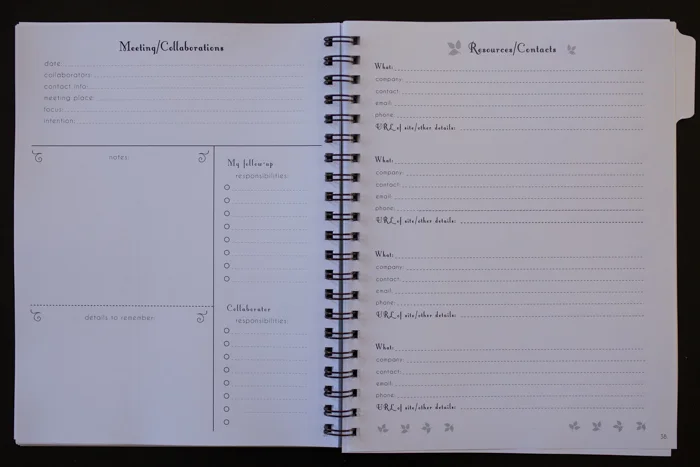 Meeting/Collaborations
date:
collaborators:
contact info:
meeting place:
focus:
intention:
notes:
My follow-up
responsibilities:
details to remember:
Collaborator
responsibilities:
Resources/Contacts
What:
company:
contact:
email:
phone:
URL of site/other details:
What:
company:
contact:
email:
phone:
URL of site/other details:
What:
company:
contact:
email:
phone:
URL of site/other details:
What:
company:
contact:
email:
phone:
URL of site/other details: